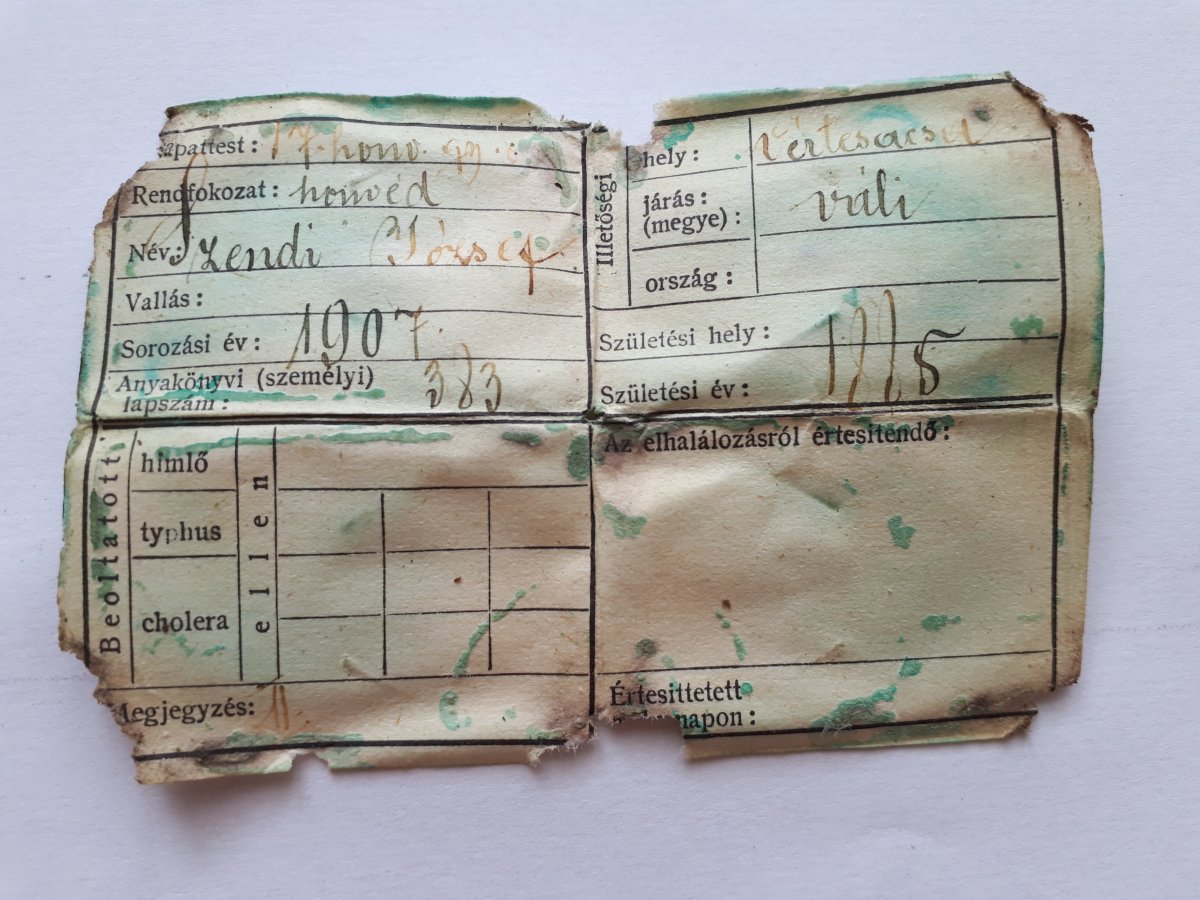 apattest : 17. honv. gy. e
Rendfokozat : honvéd
Név : Szendi József
Vallás :
Sorozási év : 1907.
Anyakönyvi (személyi) 383
lapszám :
Illetőségi
hely : Vértesacsa
járás : váli
(megye) :
ország :
Születési hely :
Születési év : 1885
Beoltatott
himlő
typhus
cholera
ellen
Megjegyzés:
Az elhalálozásról értesitendő :
Értesittetett
napon :